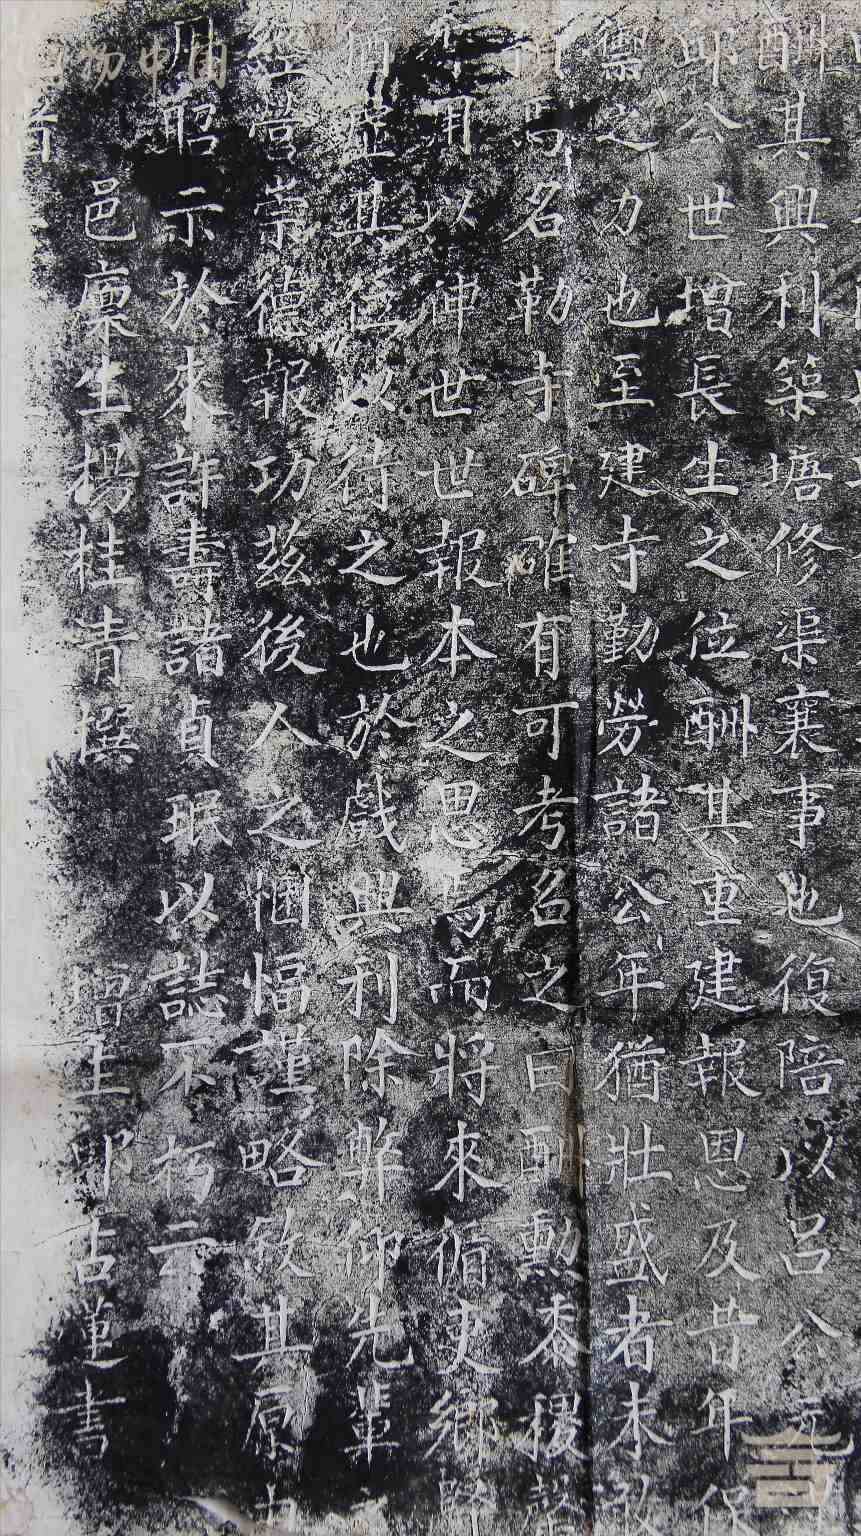 酬其興利築塘修渠襄事也復陪以呂公元
邱公世增長生之位酬其重建報恩及昔年保
禦之力也至建寺勤勞諸公年猶壯盛者未敢
馬名勒寺碑確有可考名之曰酬勳泰稷馨
用以神世世報本之思焉而將來循吏鄉賢
猶虛其位以待之也於戲興利除弊仰先輩
經營崇德報功茲後人之悃愊謹略敘其原
昭示於來許壽諸貞珉以誌不朽云
邑廩生楊桂青撰 增生 書